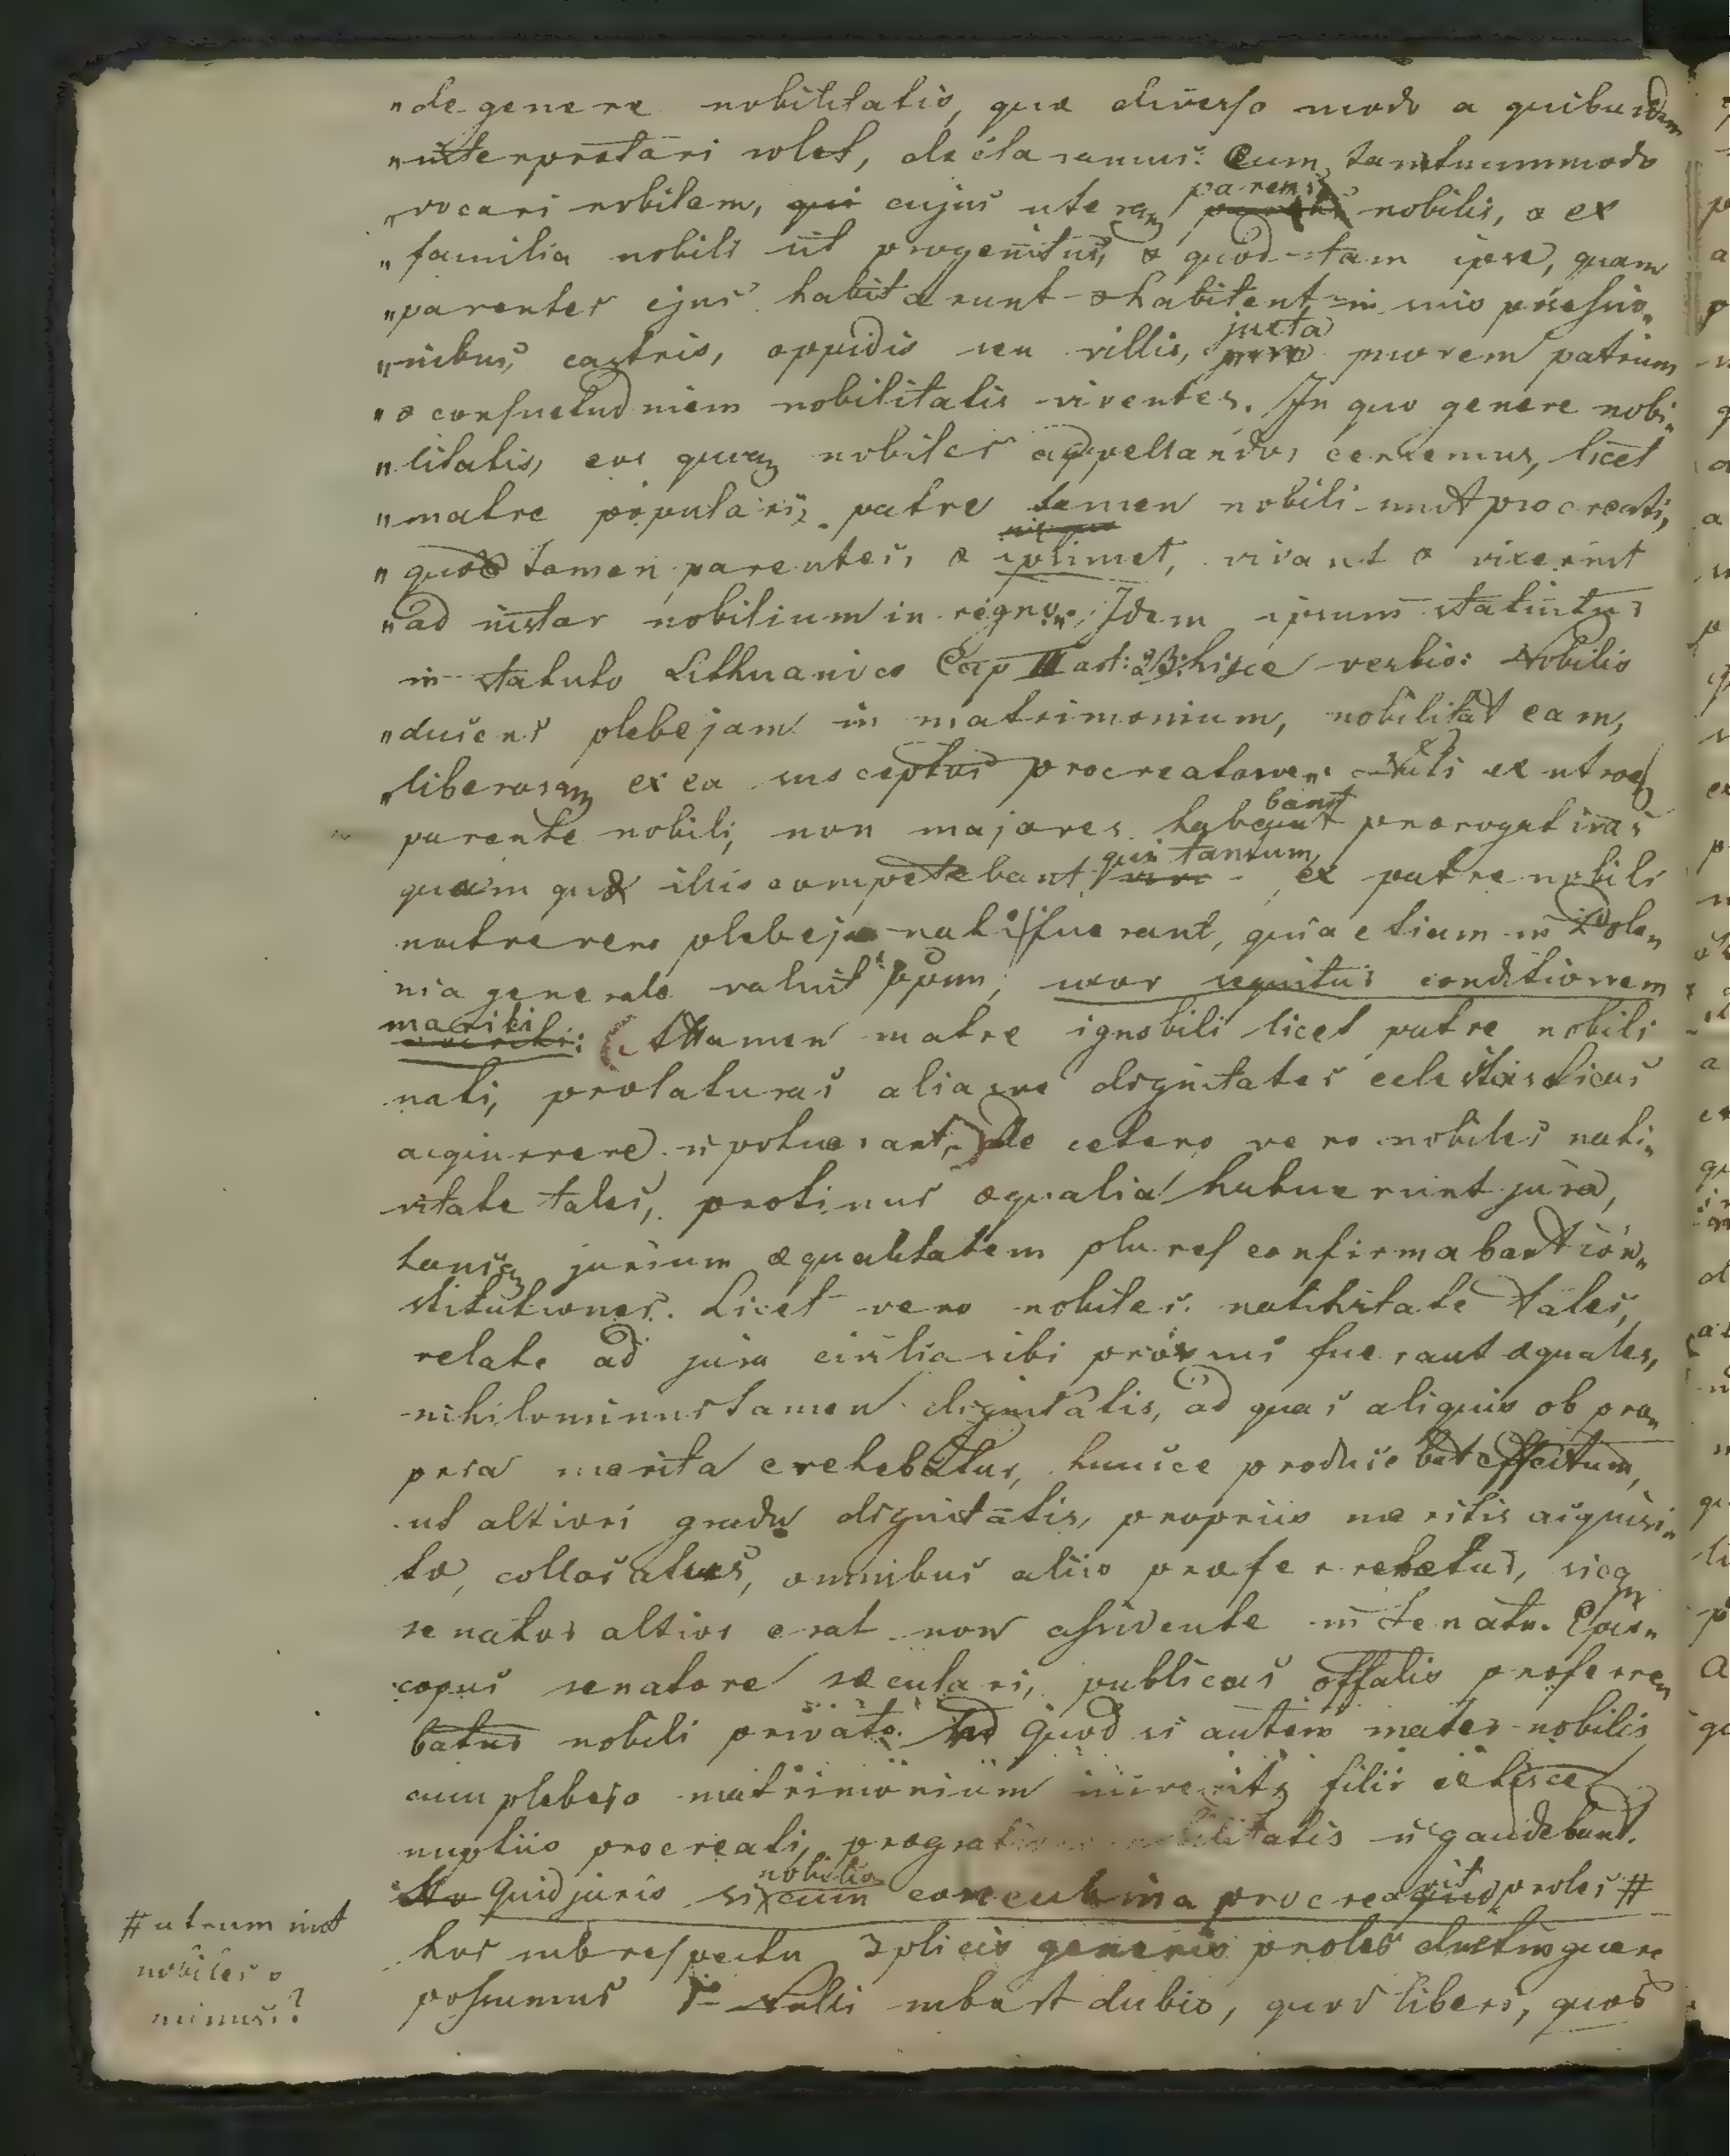 "de genere nobilitatis, quæ diverso modo a quibusdam
"interpretari solet, declaramus: Eum tantummodo
"vocari nobilem, qui cujus uterq parens nobilis, & ex
"familia nobili sit progenitus, & quod tam ipse, quam
"parentes ejus habitarunt & habitent in suis possessio„
"nibus, castris, oppidis seu villis, juxta morem patrium
"& consuetudinem nobilitatis viventes. In quo genere nobi„
"litatis, eos quoq nobiles appellandos censemus, licet
"matre populari, patre tamen nobili sint procreati,
"quod tamen parentes, & ipsimet, vivant & vixerint
"ad instar nobilium in regno„. Idem ipsum statuitur
in statuto Lithuanico Cap III art: 23: hisce verbis: Nobilis
"ducens plebejam in matrimonium, nobilitat eam,
"liberosq ex ea susceptos procreatosve„. Nati ex utroq
parente nobili, non majores habebant prærogativas
quam quæ illis competebant, qui tantum ex patre nobili
matre vero plebeja nati fuerant, quia etiam in Polo„
nia generale valuit ppium; uxor sequitur conditionem
mariti: (Attamen matre ignobili licet patre nobili
nati, prælaturas aliasve dignitates eclesiasticas
acquirere n potuerant.) De cetero vero nobiles nati„
vitate tales, protinus æqualia habuerunt jura,
hancq jurium æqualitatem plures confirmabant con„
stitutiones. Licet vero nobiles nativitate tales,
relate ad jura civilia sibi prorsus fuerant æquales,
nihilominus tamen dignitatis, ad quas aliquis ob pro„
pria merita evehebatur, huncce producebat effectum,
ut altiori gradu dignitatis, propriis meritis acquisi„
to, collocatus, omnibus aliis præferrebatur, sicq
senator altior erat non assidente in senatu. Epis„
copus senatore sæculari, publicus offalis præferre„
batur nobili privato. Quod si autem mater nobilis
cum plebejo matrimonium inierit, filii ex hisce
nuptiis procreati, prærogativa nobilitatis n gaudebant.
Quid juris si nobilis cum concubina procreavit proles #
# utrum sint
nobiles o
minus?
hos sub respectu 3plicis generis proles distinguere
possumus 1o Nulli subest dubio, quod liberi, quos